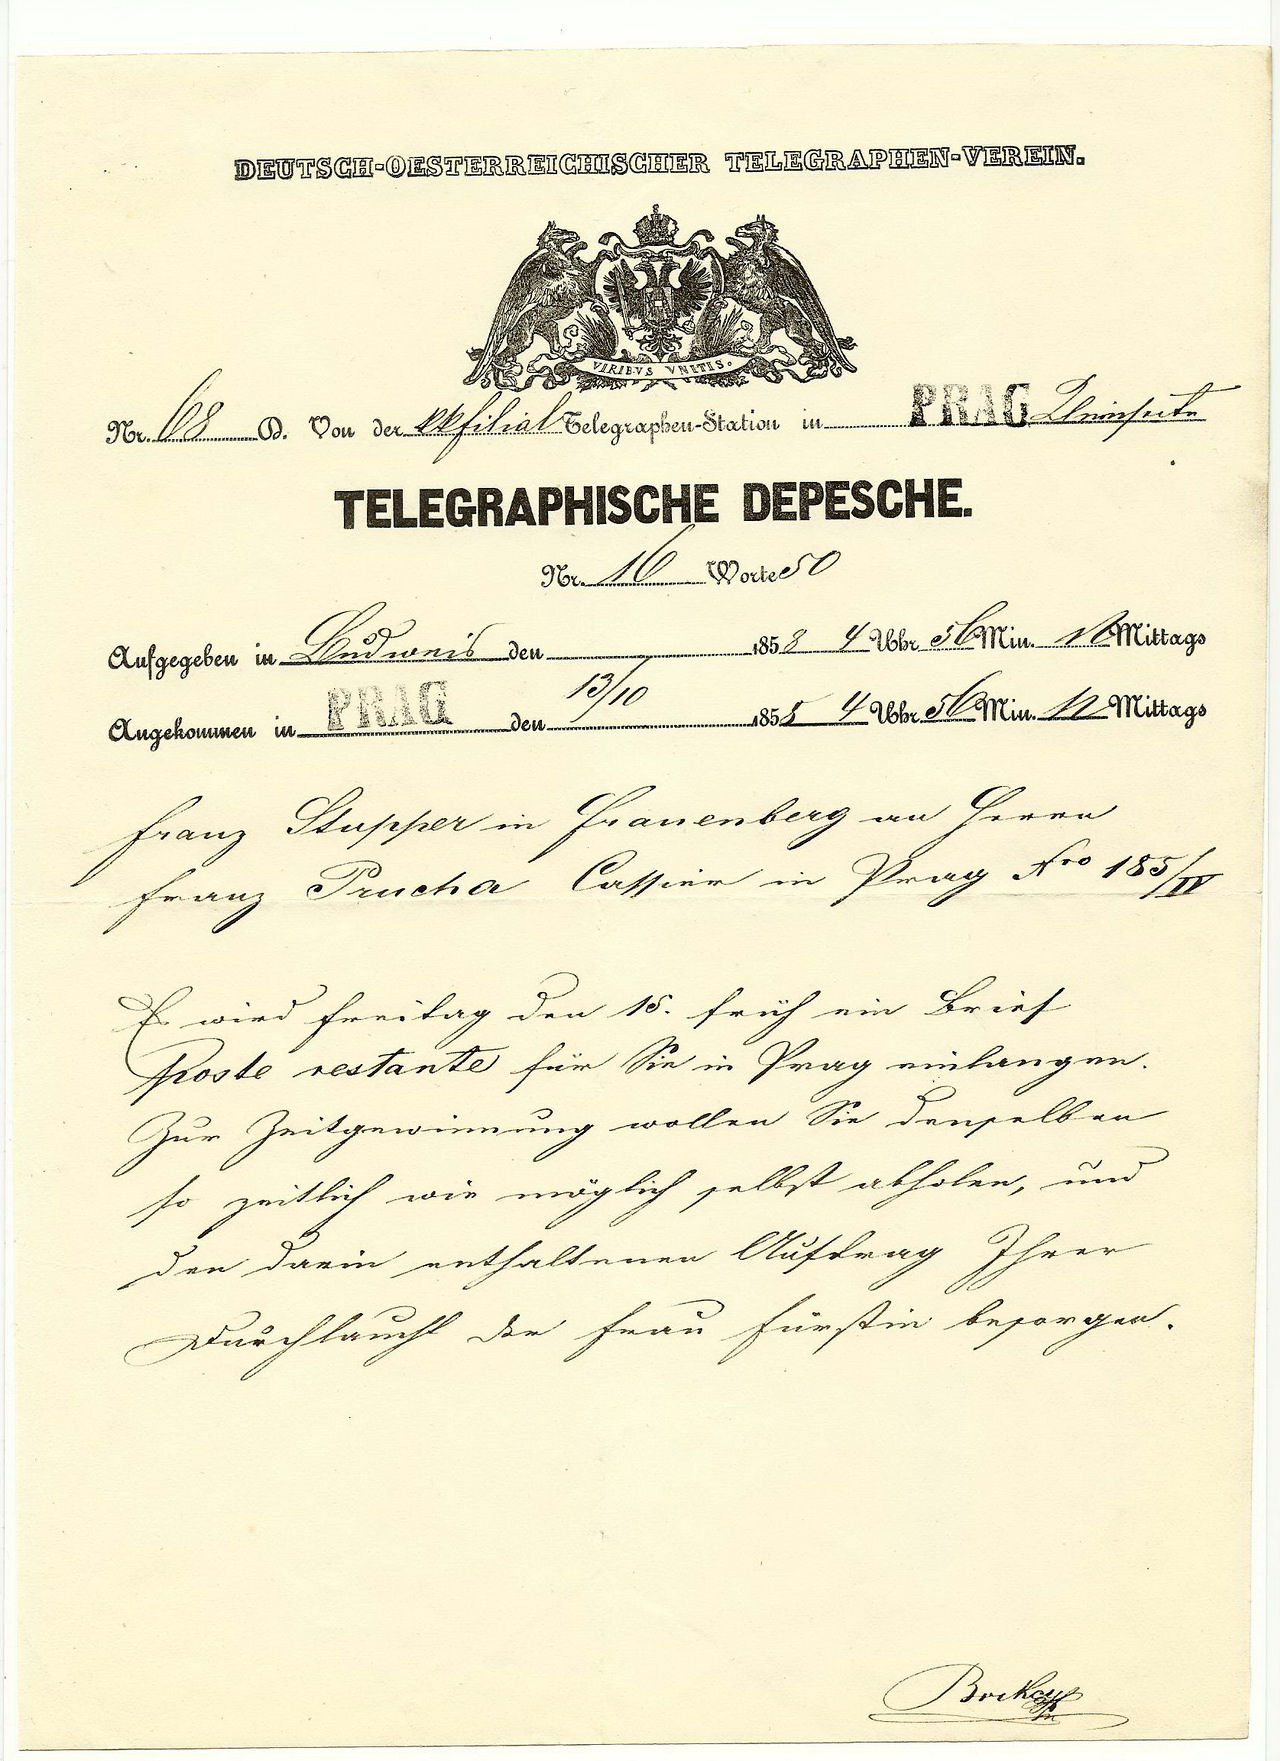 DEUTSCH-OESTERREICHISCHER TELEGRAPHEN-VEREIN.
VIRIBVS VNITIS.
Nr. 68 D. Von der kk filial Telegraphen-Station in PRAG Kleinseite
TELEGRAPHISCHE DEPESCHE.
Nr. 16 Worte 50
Aufgegeben in Budweis den 1858 4 Uhr 56 Min. N Mittags
Angekommen in PRAG den 13/10 1858 4 Uhr 56 Min. N Mittags
Franz Stupper in Frauenberg an Herrn
Franz Prucha Cassier in Prag Nro 185/IV
Es wird Freitag den 15. früh ein Brief
poste restante für Sie in Prag einlangen.
Zur Zeitgewinnung wollen Sie denselben
so zeitlich wie möglich selbst abholen, und
den darin enthaltenen Auftrag Ihrer
Durchlaucht der Frau Fürstin besorgen.